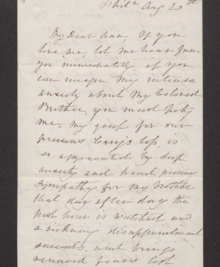 Phila Aug 20th
My Dear Anny If you
love me, let me hear from
you immediately if you
can imagine my intense
anxiety about My beloved
Brother, you must pity
me. My grief for our
precious loss is
so aggravated by deep
anxiety and heart
sympathy for My
that day after day the
hour is watched and
a sickening disappointment
succeeds, and brings
renewed fears lest